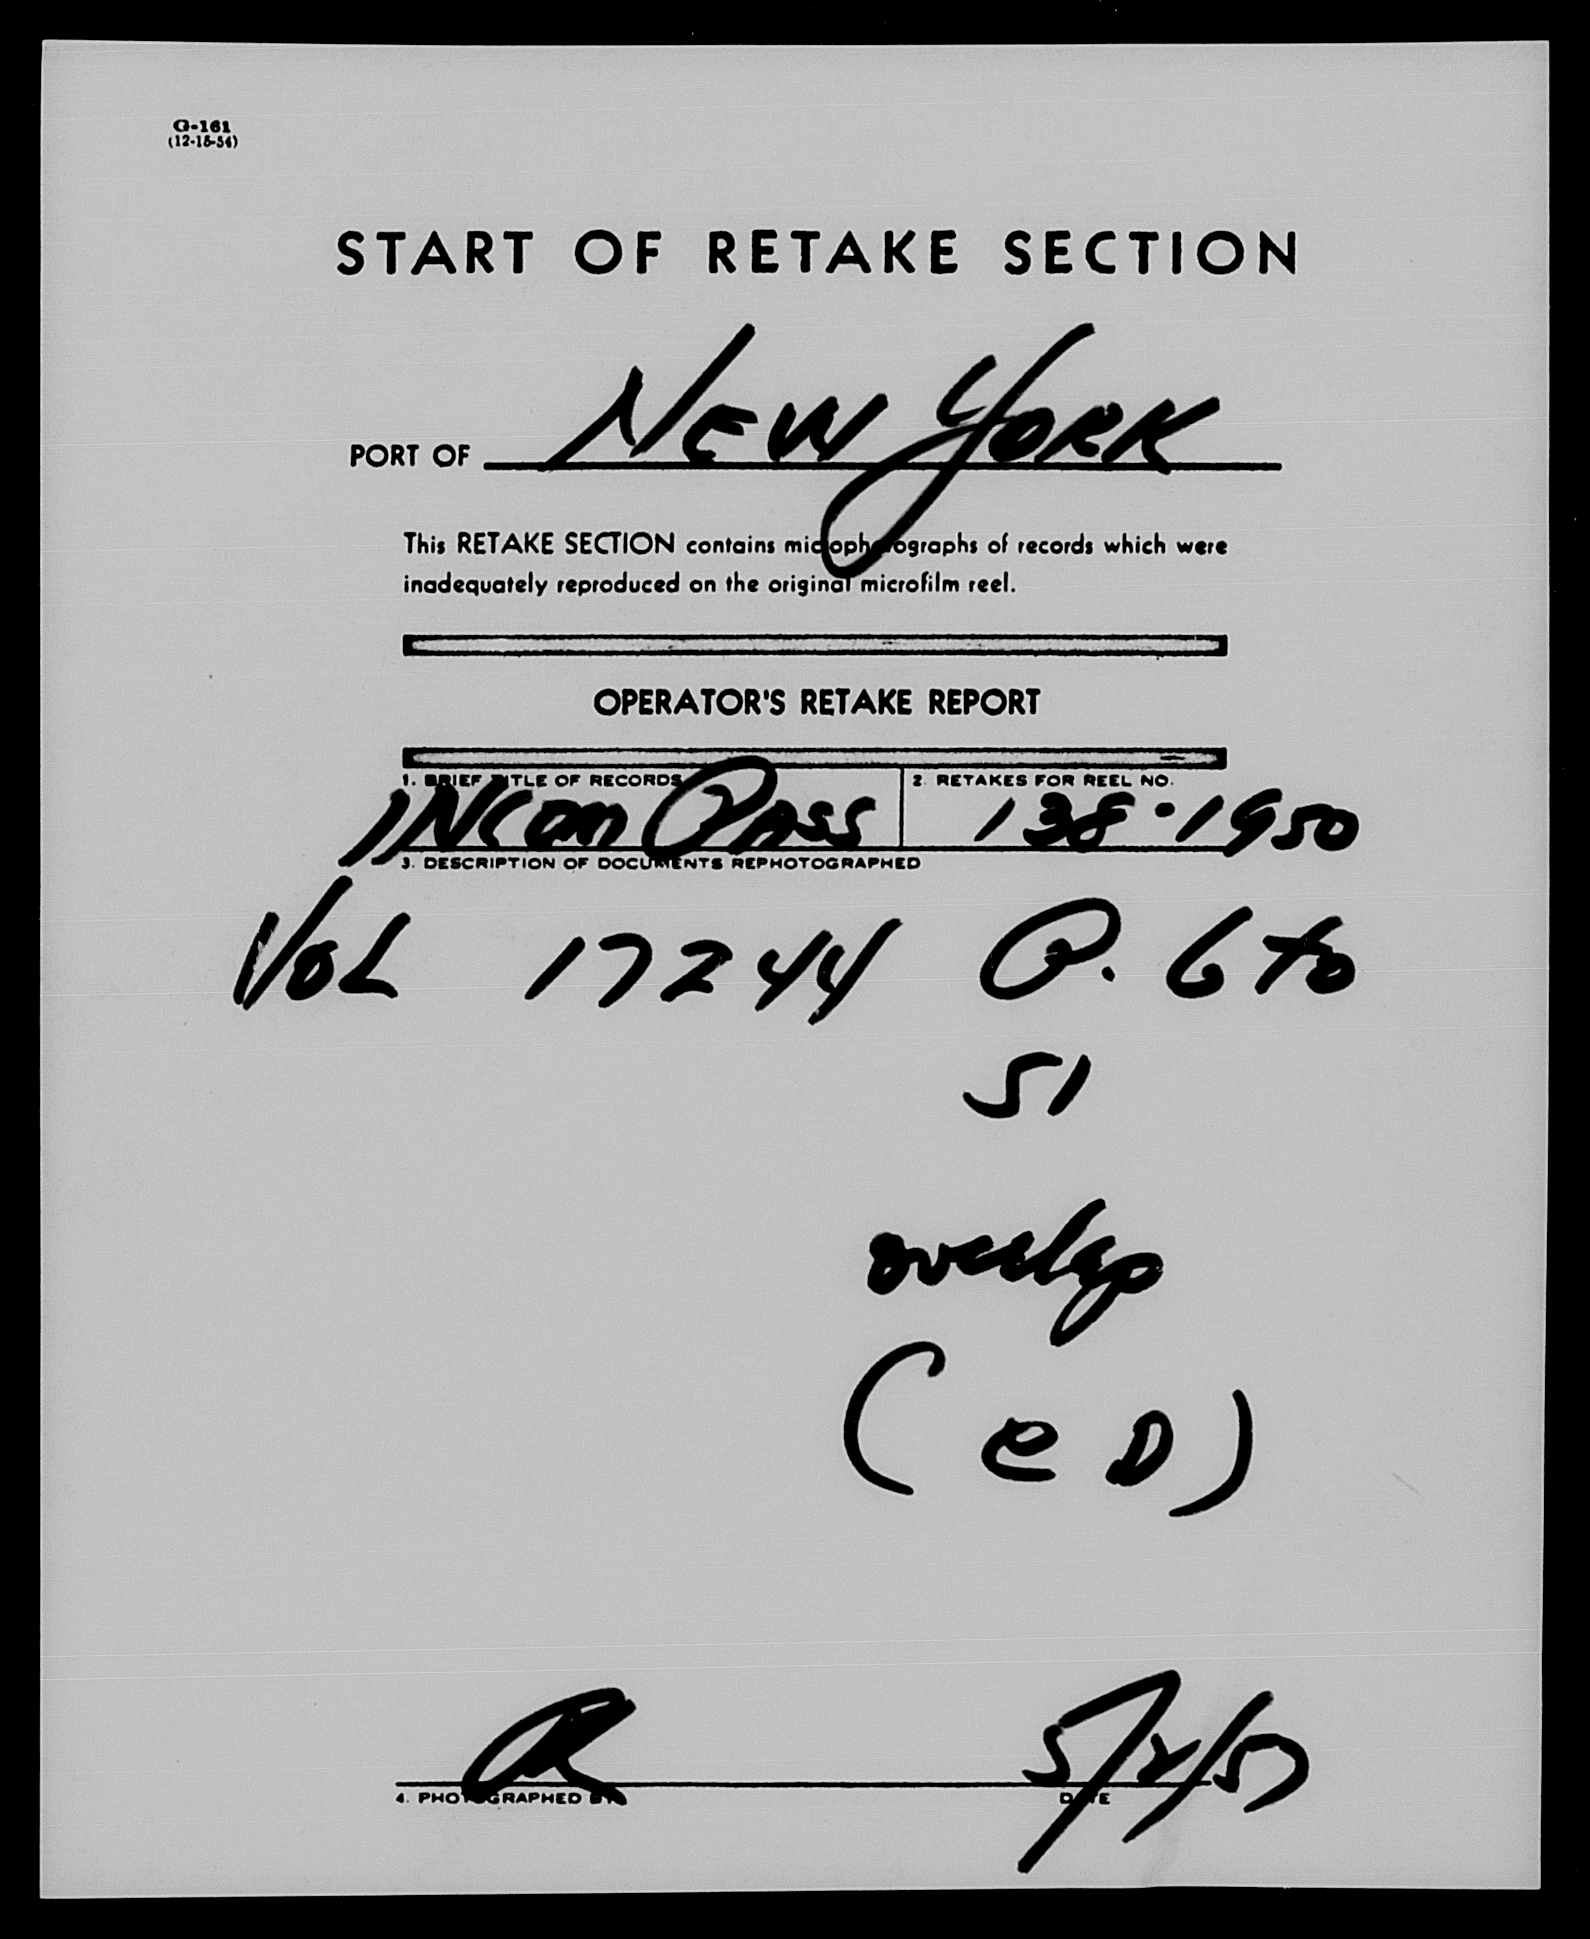 G-161
(12-15-54)
START OF RETAKE SECTION
PORT OF NEW YORK
This RETAKE SECTION contains microphotographs of records which were
inadequately reproduced on the original microfilm reel.
OPERATOR'S RETAKE REPORT
1. BRIEF TITLE OF RECORDS
INCOM PASS
2. RETAKES FOR REEL NO.
138-1950
3. DESCRIPTION OF DOCUMENTS REPHOTOGRAPHED
VOL 17244 P. 6 to
51
overlap
(e D)
5/2/57
4. PHOTOGRAPHED BY
DATE